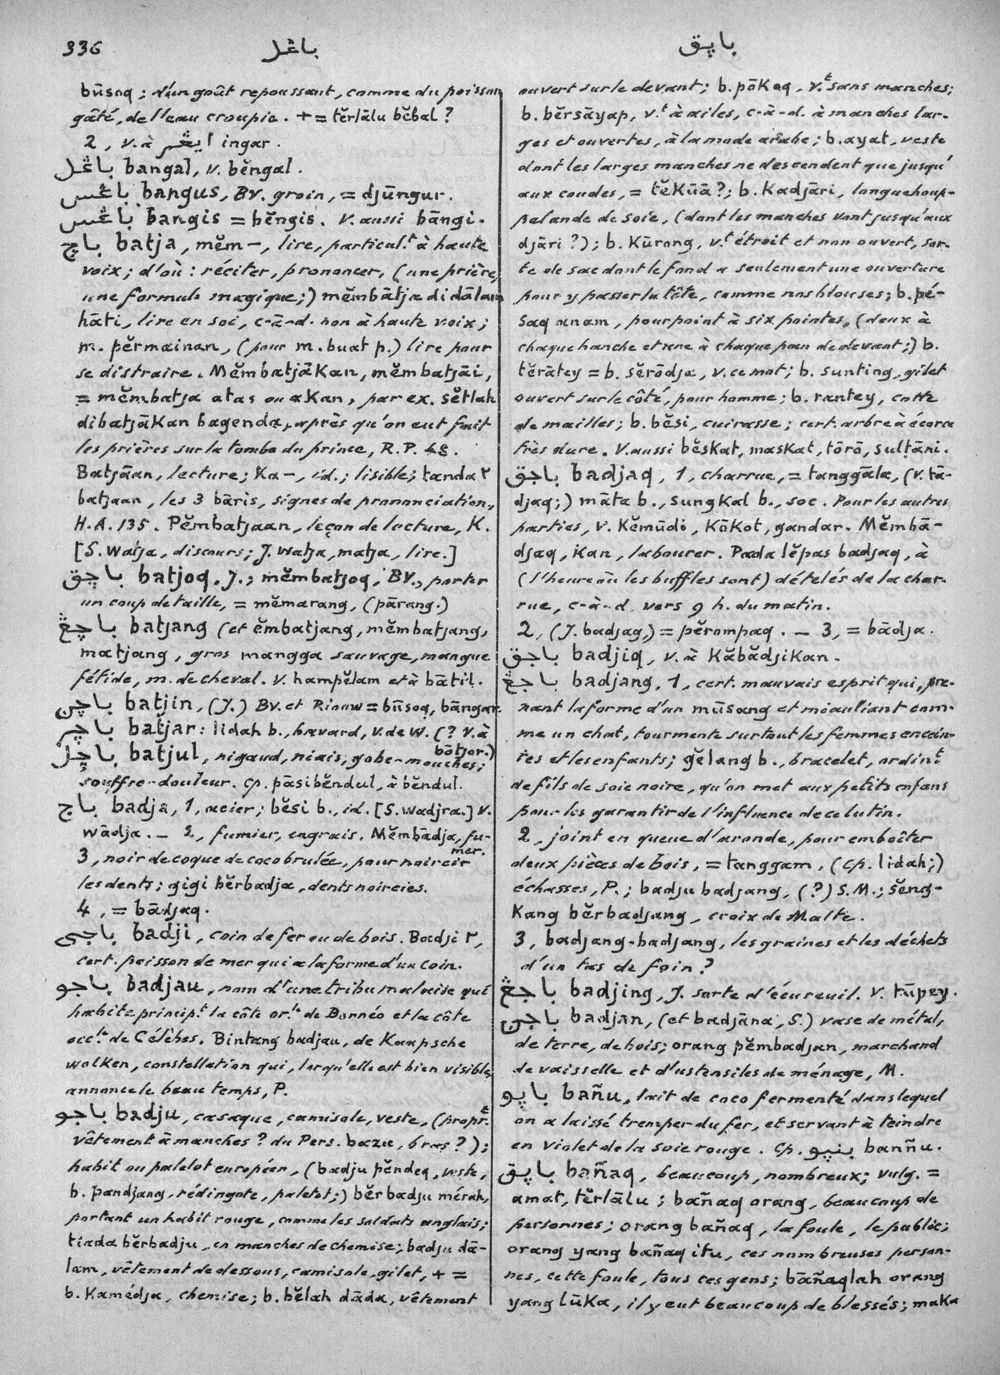 336
باڠل
باپق
būsoq; d'un goût repoussant, comme du poisson
gâté, de l'eau croupie. += tĕrlālu bĕbal?
2, v. à ايڠر ingar.
باڠل bangal, v. bĕngal.
باڠس bangus, BV. groin, = djūngur.
باڠس bangis = bĕngis. v. aussi bāngi.
باچ batja, mĕm-, lire, particult à haute
voix; d'où: réciter, prononcer, (une prière,
une formule magique;) mĕmbātja didālam
hāti, lire en soi, c-à-d. non à haute voix;
m. pĕrmainan, (pour m. buat p.) lire pour
se distraire. MĕmbatjāKan, mĕmbatjāi,
= mĕmbatja atas ou aKan, par ex. sĕtlah
dibatjāKan bagenda, après qu'on eut fait
les prières sur la tombe du prince, R.P.
Batjāan, lecture; Ka-, id.; lisible; tanda٢
batjaan, les 3 bāris, signes de prononciation,
H.A. 135. Pĕmbatjaan, leçon de lecture, K.
[S. watja, discours; J. watja, matja, lire.]
باچق batjoq, J.; mĕmbatjoq, BV., porter
un coup de taille, = mĕmarang, (pārang.)
باچڠ batjang (et ĕmbatjang, mĕmbatjang,
matjang, gros mangga sauvage, mangue
fétide, m. de cheval. v. hampĕlam et à bātil.
باچن batjin, (J.) BV. et Riouw = būsoq, bāngar.
باچر batjar: lidah b., bavard, v. de W. (? v. à
bōtjor.)
باچل batjul, nigaud, niais, gobe-mouches;
souffre-douleur. Cp. pāsibĕndul, à bĕndul.
باج badja, 1, acier; bĕsi b., id. [S. wadjra.] v.
wādja. - 2, fumier, engrais. Mĕmbādja, fu-
mer.
3, noir de coque de coco brulée, pour noircir
les dents; gigi bĕrbadja, dents noircies.
4, = bādjaq.
باجي badji, coin de fer ou de bois. Badji ٢,
cert. poisson de mer qui a la forme d'un coin.
باجو badjau, nom d'une tribu malaise qui
habite principt la côte orle de Bornéo et la côte
occle de Célèbes. Bintang badjau, de Kaapsche
wolken, constellation qui, lorqu'elle est bien visible,
annonce le beau temps, P.
باجو badju, casaque, camisole, veste, (propt.
vêtement à manches? du Pers. bazu, bras?);
habit ou paletot européen, (badju pĕndeq, veste,
b. pandjang, rédingote, paletot;) bĕrbadju mérah,
portant un habit rouge, comme les soldats anglais;
tiada bĕrbadju, en manches de chemise; badju dā-
lam, vêtement de dessous, camisole, gilet, + =
b. Kamédja, chemise; b. bĕlah dāda, vêtement
ouvert sur le devant; b. pōKoq, vt sans manches;
b. bĕrsāyap, vt à ailes, c-à-d. à manches lar-
ges et ouvertes, à la mode arabe; b. ayat, veste
dont les larges manches ne descendent que jusqu'
aux coudes, = tĕKūā?; b. Kadjāri, longue houp-
pelande de soie, (dont les manches vont jusqu'aux
djāri?); b. Kūrong, vt étroit et non ouvert, sor-
te de sac dont le fond a seulement une ouverture
pour y passer la tête, comme nos blouses; b. pé-
saq anam, pourpoint à six pointes, (deux à
chaque hanche et une à chaque pan de devant;) b.
tĕrātey = b. sĕrōdja, v. ce mot; b. sunting, gilet
ouvert sur le côté, pour homme; b. rantey, cotte
de mailles; b. bĕsi, cuirasse; cert. arbre à écorce
très dure. V. aussi bĕsKat, masKat, tōrō, sultāni.
باجق badjaq, 1, charrue, = tanggāla, (v. tā-
djaq;) māta b., sungKal b., soc. Pour les autres
parties, v. Kĕmūdi, KōKot, gandar. Mĕmbā-
djaq, Kan, labourer. Pada lĕpas badjaq, à
(l'heure où les buffles sont) dételés de la char-
rue, c-à-d. vers 9 h. du matin.
2, (J. badjag,) = pĕrompaq. - 3, = bādja.
باجق badjiq, v. à KăbădjiKan.
باجڠ badjang, 1, cert. mauvais esprit qui, pre-
nant la forme d'un mūsang et miauliant com-
me un chat, tourmente surtout les femmes encein-
tes et les enfants; gĕlang b., bracelet, ordint
de fils de soie noire, qu'on met aux petits enfans
pour les garantir de l'influence de ce lutin.
2, joint en queue d'aronde, pour emboîter
deux pièces de bois, = tanggam, (cp. lidah;)
échasses, P.; badju badjang, (?) S.M.; sĕng-
Kang bĕrbadjang, croix de Malte.
3, badjang-badjang, les graines et les déchets
d'un tas de foin?
باجڠ badjing, J. sorte d'écureuil. v. tūpey.
باجن badjan, (et badjāna, S.) vase de métal,
de terre, de bois; orang pĕmbadjan, marchand
de vaisselle et d'ustensiles de ménage, M.
باپو bañu, lait de coco fermenté dans lequel
on a laissé tremper du fer, et servant à teindre
en violet de la soie rouge. Cp. بنيو banñu.
باپق bañaq, beaucoup, nombreux; vulg. =
amat, tĕrlālu; bañaq orang, beaucoup de
personnes; orang bañaq, la foule, le public;
orang yang bañaq itu, ces nombreuses person-
nes, cette foule, tous ces gens; bāñaqlah orang
yang lūKa, il y eut beaucoup de blessés; maKa